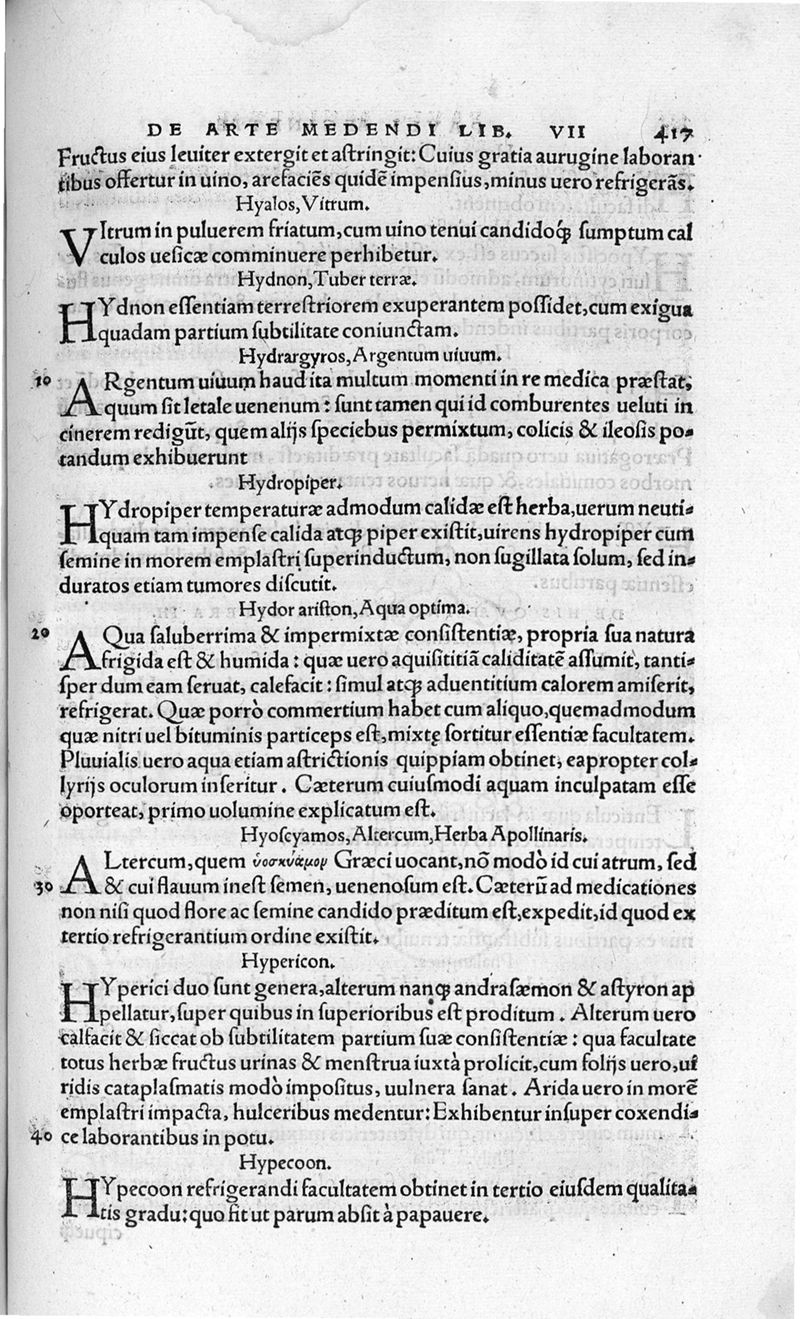 DE ARTE MEDENDI LIB. VII 417
Fructus eius leuiter extergit et astringit: Cuius gratia aurugine laboran
tibus offertur in uino, arefaciēs quidē impensius, minus uero refrigerās.
Hyalos, Vitrum.
VItrum in puluerem friatum, cum uino tenui candidoq́; sumptum cal
culos uesicæ comminuere perhibetur.
Hydnon, Tuber terræ.
HYdnon essentiam terrestriorem exuperantem possidet, cum exigua
quadam partium subtilitate coniunctam.
Hydrargyros, Argentum uiuum.
10 ARgentum uiuum haud ita multum momenti in re medica præstat,
quum sit letale uenenum: sunt tamen qui id comburentes ueluti in
cinerem redigūt, quem alijs speciebus permixtum, colicis & ileosis po-
tandum exhibuerunt
Hydropiper.
HYdropiper temperaturæ admodum calidæ est herba, uerum neuti-
quam tam impense calida atq; piper existit, uirens hydropiper cum
semine in morem emplastri superinductum, non sugillata solum, sed in-
duratos etiam tumores discutit.
Hydor ariston, Aqua optima.
20 AQua saluberrima & impermixtæ consistentiæ, propria sua natura
frigida est & humida: quæ uero aquisititiā caliditatē assumit, tanti-
sper dum eam seruat, calefacit: simul atq; aduentitium calorem amiserit,
refrigerat. Quæ porrò commertium habet cum aliquo, quemadmodum
quæ nitri uel bituminis particeps est, mixtę sortitur essentiæ facultatem.
Pluuialis uero aqua etiam astrictionis quippiam obtinet, eapropter col-
lyrijs oculorum inseritur. Cæterum cuiusmodi aquam inculpatam esse
oporteat, primo uolumine explicatum est.
Hyoscyamos, Altercum, Herba Apollinaris.
ALtercum, quem ὑοσκυάμον Græci uocant, nō modò id cui atrum, sed
30 & cui flauum inest semen, uenenosum est. Cæterū ad medicationes
non nisi quod flore ac semine candido præditum est, expedit, id quod ex
tertio refrigerantium ordine existit.
Hypericon.
HYperici duo sunt genera, alterum nanq; andrasæmon & astyron ap
pellatur, super quibus in superioribus est proditum. Alterum uero
calfacit & siccat ob subtilitatem partium suæ consistentiæ: qua facultate
totus herbæ fructus urinas & menstrua iuxtà prolicit, cum folijs uero, ui
ridis cataplasmatis modò impositus, uulnera sanat. Arida uero in morē
emplastri impacta, hulceribus medentur: Exhibentur insuper coxendi-
40 ce laborantibus in potu.
Hypecoon.
HYpecoon refrigerandi facultatem obtinet in tertio eiusdem qualita-
tis gradu: quo fit ut parum absit à papauere.